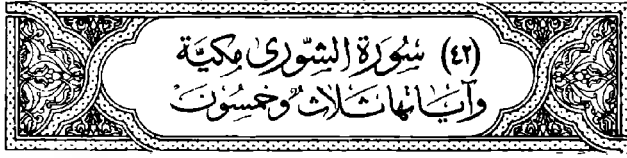 (٤٢) سُورَة الشّورى مكيَّة
وَآيَاتها ثَلاثٌ وَخَمسُونَ